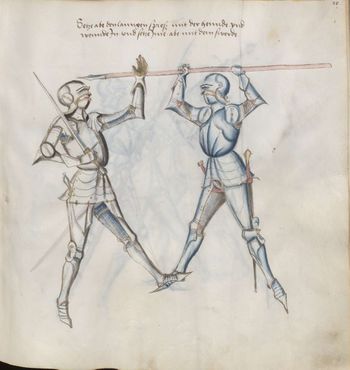 Setze abe den lanngen spiess mit der hennde vnd
wennde In vnd setze Ine abe mit dem swerde